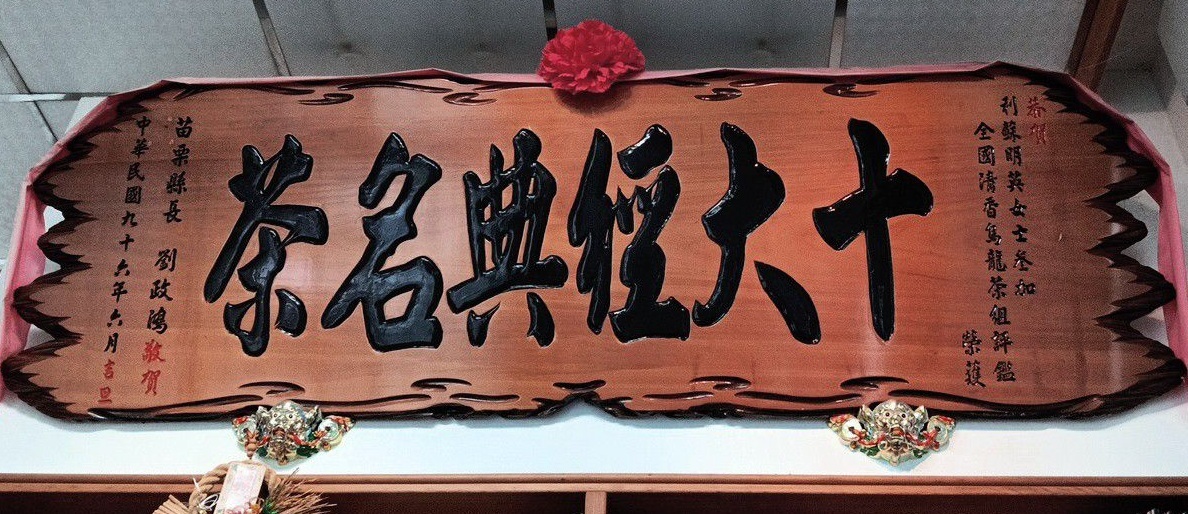 恭賀
利蘇明英女士叄加
全國清香烏龍茶組評鑑
榮獲
十大經典名茶
苗栗縣長 劉政鴻 敬賀
中華民國九十六年六月吉旦